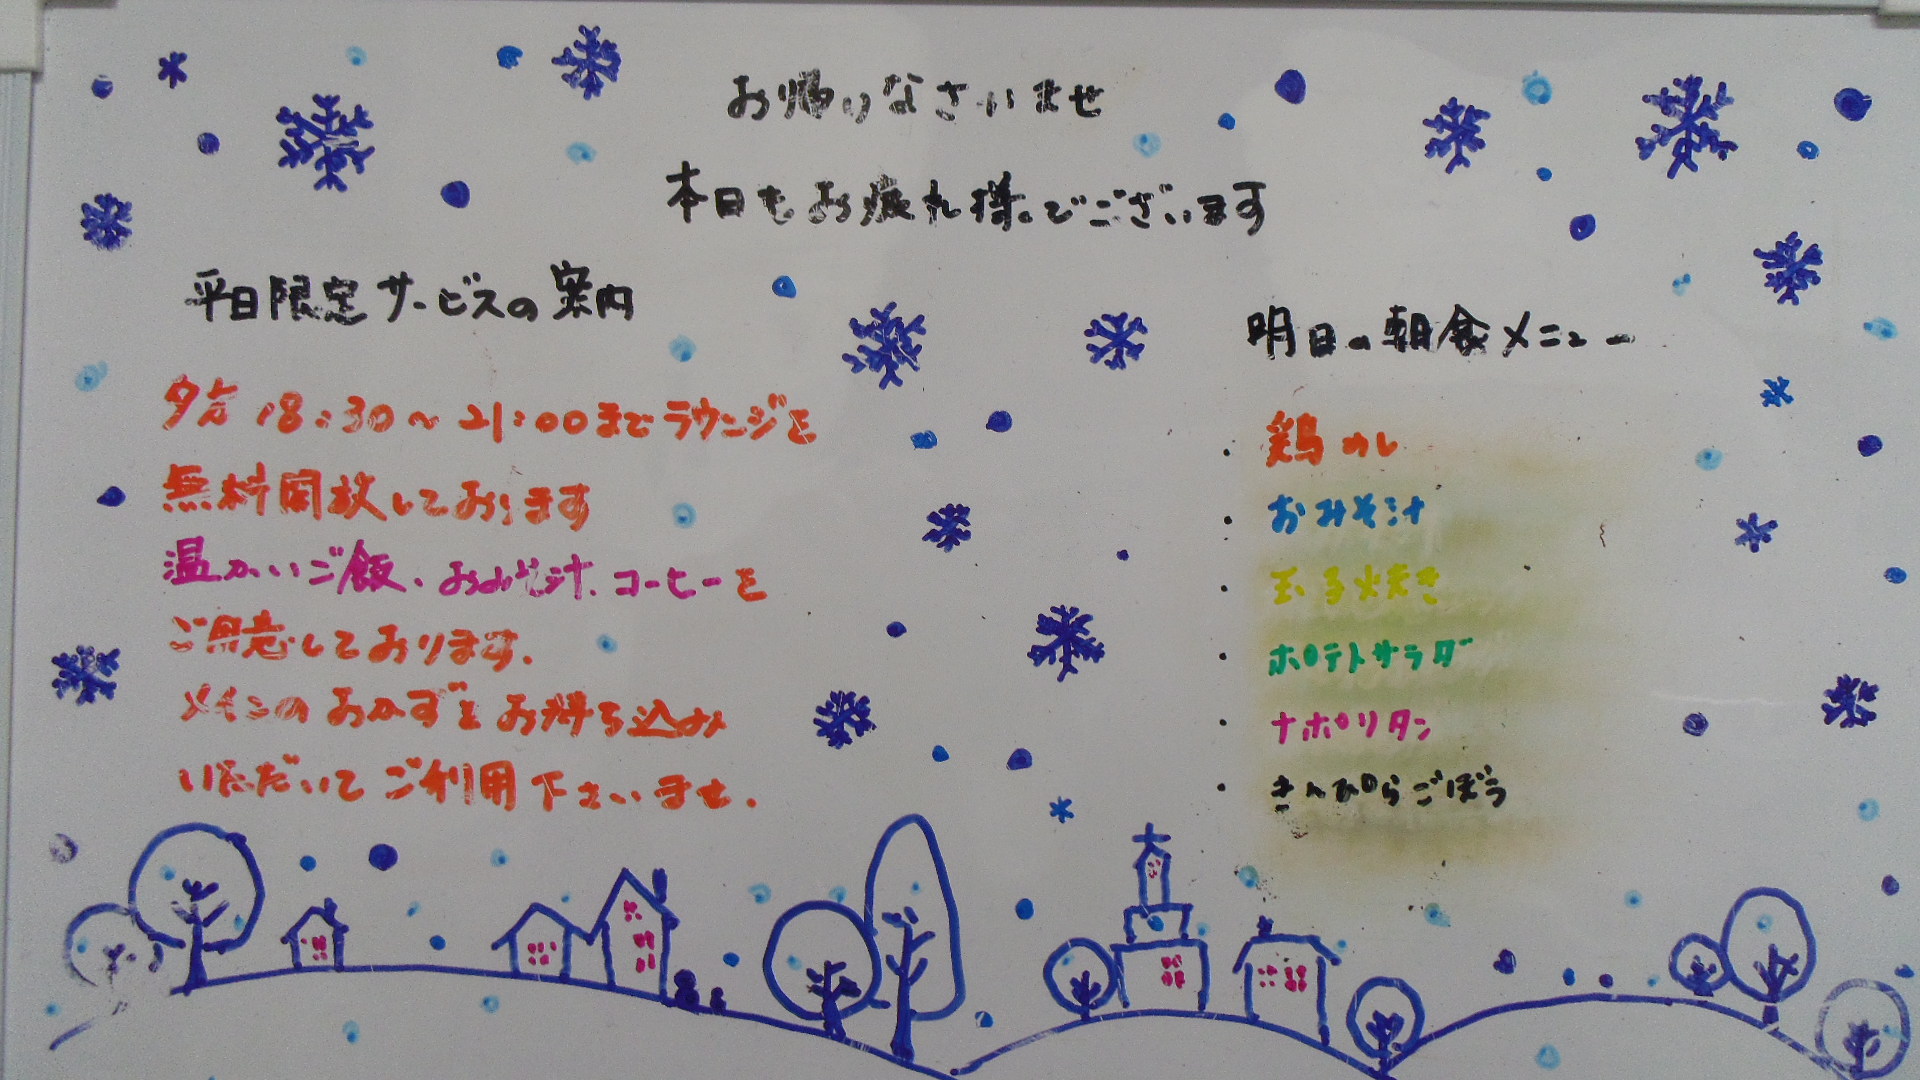 お帰りなさいませ
本日もお疲れ様でございます
平日限定サービスの案内
夕方 18:30~21:00までラウンジを
無料開放しております
温かいご飯、おみそ汁、コーヒーを
ご用意しております。
メインのおかずをお持ち込み
いただいてご利用下さいませ。
明日の朝食メニュー
・鶏めし
・おみそ汁
・玉子焼き
・ポテトサラダ
・ナポリタン
・きんぴらごぼう